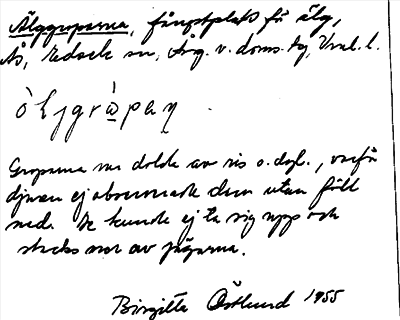 Älggroparna, fångstplats för älg,
Ås, Edsele sn, Ång. v. doms. tg, Vnl. l.
Groparna var dolda av ris o. dyl., varför
djuren ej observerade dem utan föll
ned. De kunde ej ta sig upp och
stacks ner av jägarna.
Birgitta Östlund 1955